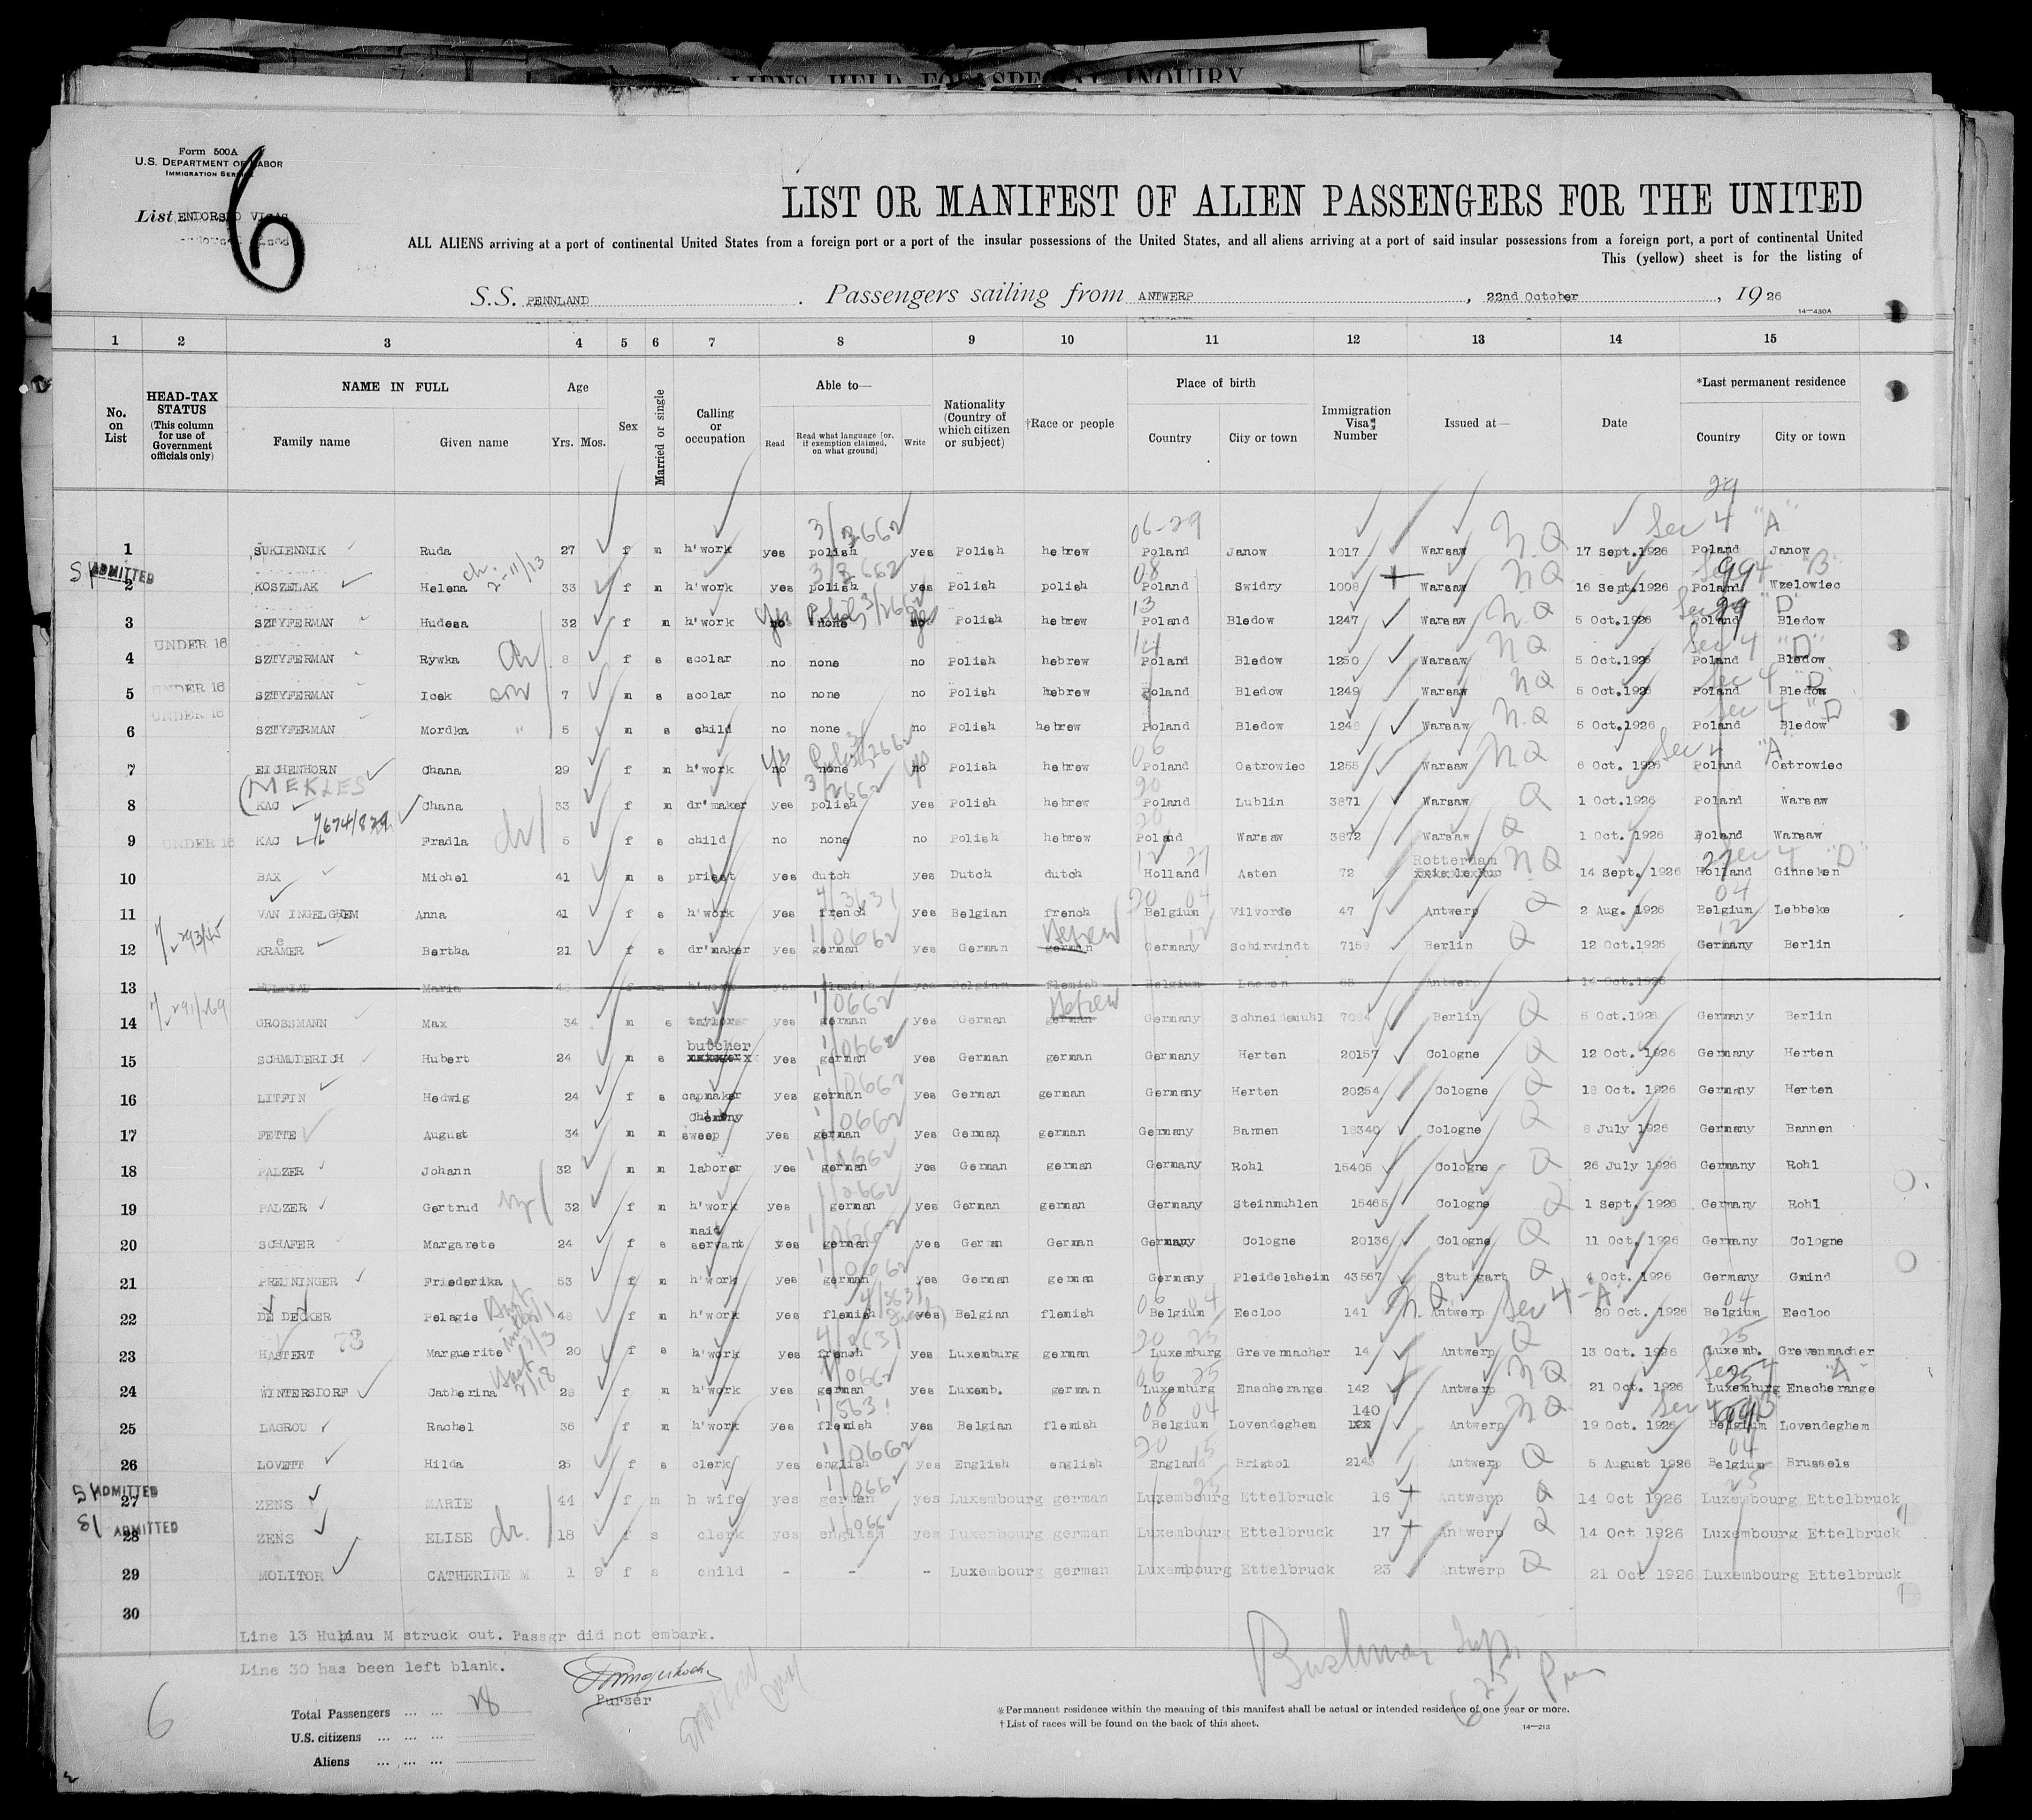 ALIENS HELD FOR SPECIAL INQUIRY
Form 500A
U.S. DEPARTMENT OF LABOR
IMMIGRATION SERVICE
6
List ENDORSED VISAS
LIST OR MANIFEST OF ALIEN PASSENGERS FOR THE UNITED
ALL ALIENS arriving at a port of continental United States from a foreign port or a port of the insular possessions of the United States, and all aliens arriving at a port of said insular possessions from a foreign port, a port of continental United
This (yellow) sheet is for the listing of
S.S. PENNLAND . Passengers sailing from ANTWERP , 22nd October , 1926
14—430A
1 2 3 4 5 6 7 8 9 10 11 12 13 14 15
No. on List
HEAD-TAX STATUS (This column for use of Government officials only)
NAME IN FULL
Family name Given name
Age
Yrs. Mos.
Sex
Married or single
Calling or occupation
Able to—
Read Read what language [or, if exemption claimed, on what ground] Write
Nationality (Country of which citizen or subject)
†Race or people
Place of birth
Country City or town
Immigration Visa Number
Issued at—
Date
*Last permanent residence
Country City or town
29
3/2662 06-29 N.Q Sec 4 "A"
1 SUKIENNIK Ruda 27 f m h'work yes polish yes Polish hebrew Poland Janow 1017 Warsaw 17 Sept.1926 Poland Janow
SI ADMITTED ch. 2-11/13 3/2662 08 NQ Sec 4 "B"
2 KOSZELAK Helena 33 f m h'work yes polish yes Polish polish Poland Swidry 1008 Warsaw 16 Sept.1926 Poland Wzelowiec
yes Polish 3/2662 yes 13 N.Q Sec 4 "D"
3 SZTYFERMAN Hudesa 32 f m h'work no none no Polish hebrew Poland Bledow 1247 Warsaw 5 Oct.1926 Poland Bledow
UNDER 16 14 NQ Sec 4 "D"
4 SZTYFERMAN Rywka 8 f s scolar no none no Polish hebrew Poland Bledow 1250 Warsaw 5 Oct.1926 Poland Bledow
UNDER 16 son NQ Sec 4 "D"
5 SZTYFERMAN Icek 7 m s scolar no none no Polish hebrew Poland Bledow 1249 Warsaw 5 Oct.1926 Poland Bledow
UNDER 16 N.Q Sec 4 "D"
6 SZTYFERMAN Mordka " 5 m s child no none no Polish hebrew Poland Bledow 1248 Warsaw 5 Oct.1926 Poland Bledow
yes Polish 3/2662 yes 06 NQ Sec 4 "A"
7 EICHENHORN Chana 29 f m h'work no none no Polish hebrew Poland Ostrowiec 1255 Warsaw 6 Oct. 1926 Poland Ostrowiec
(MEKLES 3/2662 20 Q
8 KAC Chana 33 f m dr'maker yes polish yes Polish hebrew Poland Lublin 3871 Warsaw 1 Oct.1926 Poland Warsaw
UNDER 16 dr 20 Q
9 KAC Fradla 5 f s child no none no Polish hebrew Poland Warsaw 3872 Warsaw 1 Oct. 1926 Poland Warsaw
12 27 Rotterdam NQ 27 Sec 4 "D"
10 BAX Michel 41 m s priest yes dutch yes Dutch dutch Holland Asten 72 14 Sept. 1926 Holland Ginneken
4/3631 20 04 Q 04
11 VAN INGELGHEM Anna 41 f s h'work yes french yes Belgian french Belgium Vilvorde 47 Antwerp 2 Aug. 1926 Belgium Lebbeke
1/0662 Hebrew 12 Q 12
12 KRAMER Bertha 21 f s dr'maker yes german yes German german Germany Schirwindt 7158 Berlin 12 Oct.1926 Germany Berlin
13 HULPIAU Maria f h'work yes flemish yes Belgian flemish Belgium Laeken Antwerp 14 Oct.1926
1/0662 Hebrew Q
14 GROSSMANN Max 34 m s taylor yes german yes German german Germany Schneidemuhl 7084 Berlin 5 Oct.1926 Germany Berlin
butcher 1/0662 Q
15 SCHMUDERICH Hubert 24 m s yes german yes German german Germany Herten 20157 Cologne 12 Oct. 1926 Germany Herten
1/0662 Q
16 LITFIN Hedwig 24 f s capmaker yes german yes German german Germany Herten 20254 Cologne 18 Oct. 1926 Germany Herten
Chimny 1/0662 Q
17 FETTE August 34 m m sweep yes german yes German german Germany Bannen 18340 Cologne 8 July 1926 Germany Bannen
1/0662 Q
18 PALZER Johann 32 m m laborer yes german yes German german Germany Rohl 15405 Cologne 26 July 1926 Germany Rohl
1/0662 Q
19 PALZER Gertrud 32 f m h'work yes german yes German german Germany Steinmuhlen 15465 Cologne 1 Sept. 1926 Germany Rohl
maid 1/0662 Q
20 SCHAFER Margarete 24 f s servant yes german yes German German Germany Cologne 20136 Cologne 11 Oct. 1926 Germany Cologne
1/0662 Q
21 PREUNINGER Friederika 53 f m h'work yes german yes German german Germany Pleidelsheim 43567 Stuttgart 4 Oct. 1926 Germany Gmind
4/3631 06 04 N.Q Sec 4-"A" 04
22 DE DECKER Pelagie 48 f m h'work yes flemish yes Belgian flemish Belgium Eecloo 141 Antwerp 20 Oct. 1926 Belgium Eecloo
73 4/3631 20 25 Q 25
23 HASTERT Marguerite 20 f s h'work yes french yes Luxemburg german Luxemburg Grevenmacher 14 Antwerp 13 Oct. 1926 Luxemb. Grevenmacher
1/0662 06 25 NQ Sec 4 "A" 25
24 WINTERSDORF Catherina 28 f m h'work yes german yes Luxemb. german Luxemburg Enscherange 142 Antwerp 21 Oct. 1926 Luxemburg Enscherange
1/3631 08 04 140 NQ Sec 4 "B"
25 LAGROU Rachel 36 f m h'work yes flemish yes Belgian flemish Belgium Lovendeghem Antwerp 19 Oct. 1926 Belgium Lovendeghem
1/0662 20 15 Q 04
26 LOVETT Hilda 25 f s clerk yes english yes English english England Bristol 2143 Antwerp 5 August 1926 Belgium Brussels
SI ADMITTED 1/0662 25 Q 25
27 ZENS MARIE 44 f m h wife yes german yes Luxembourg german Luxembourg Ettelbruck 16 Antwerp 14 Oct 1926 Luxembourg Ettelbruck
SI ADMITTED dr. 1/0662 Q
28 ZENS ELISE 18 f s clerk yes english yes Luxembourg german Luxembourg Ettelbruck 17 Antwerp 14 Oct 1926 Luxembourg Ettelbruck
29 MOLITOR CATHERINE M 1 9 f s child - - - Luxembourg german Luxembourg Ettelbruck 23 Antwerp Q 21 Oct 1926 Luxembourg Ettelbruck
30
Line 13 Hulpiau M struck out. Passgr did not embark.
Line 30 has been left blank.
Purser
6
Total Passengers ... ... 28
U.S. citizens ... ... ...
Aliens ... ... ...
Bushman Insp.
625 Pm
*Permanent residence within the meaning of this manifest shall be actual or intended residence of one year or more.
†List of races will be found on the back of this sheet.
14—213